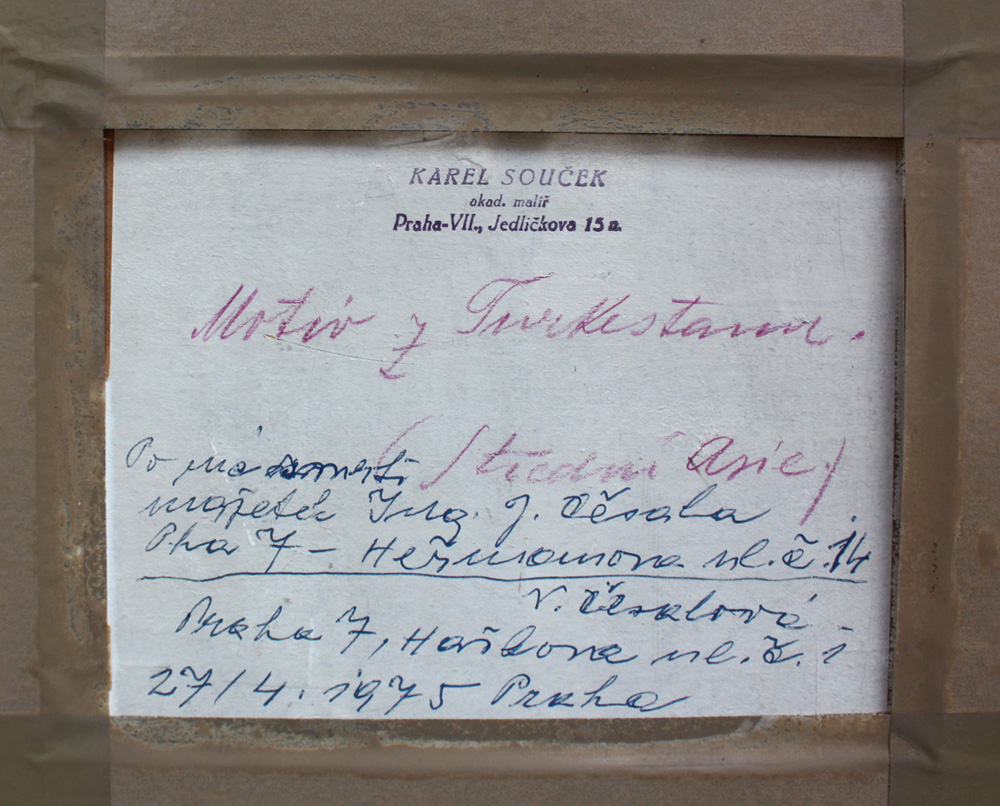 KAREL SOUČEK
akad. malíř
Praha-VII., Jedličkova 15 a.
Motiv z Turkestanu.
(Střední Asie)
Po mé smrti
majetek Ing. J. Česala
Pha 7 - Heřmanova ul. č. 14
V. Česalová -
Praha 7, Haškova ul. č. 1
27/4. 1975 Praha